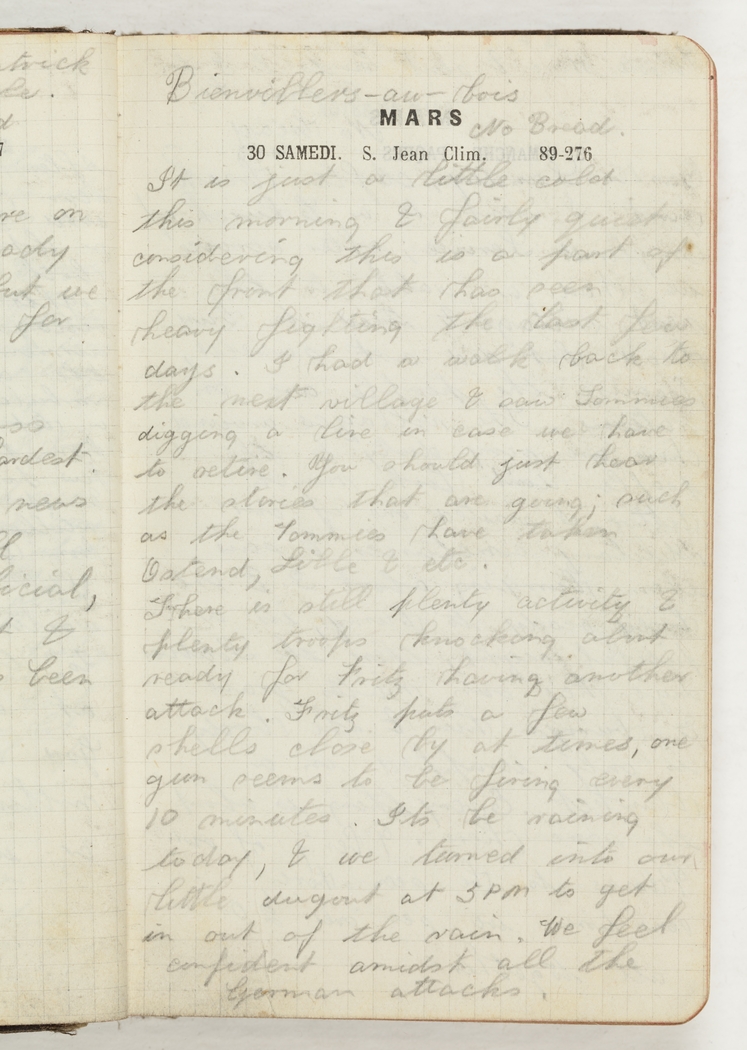 trick
Bienvillers-au-bois
MARS
No Bread.
30 SAMEDI. S. Jean Clim. 89-276
It is just a little cold
this morning & fairly quiet
considering this is a part of
the front that has seen
heavy figting the last few
days. I had a walk back to
the next village & saw Tommies
digging a line in case we have
to retire. You should just hear
the stories that are going; such
as the Tommies have taken
Ostend, Lille & etc.
There is still plenty activity &
plenty troops knocking about
ready for Fritz having another
attack. Fritz puts a few
shells close by at times, one
gun seems to be firing every
10 minutes. Its be raining
today, & we turned into our
little dugout at 5 PM to get
in out of the rain. We feel
confident amidst all the
German attacks.
re on
ady
but we
for
ardest.
news
icial,
&
been